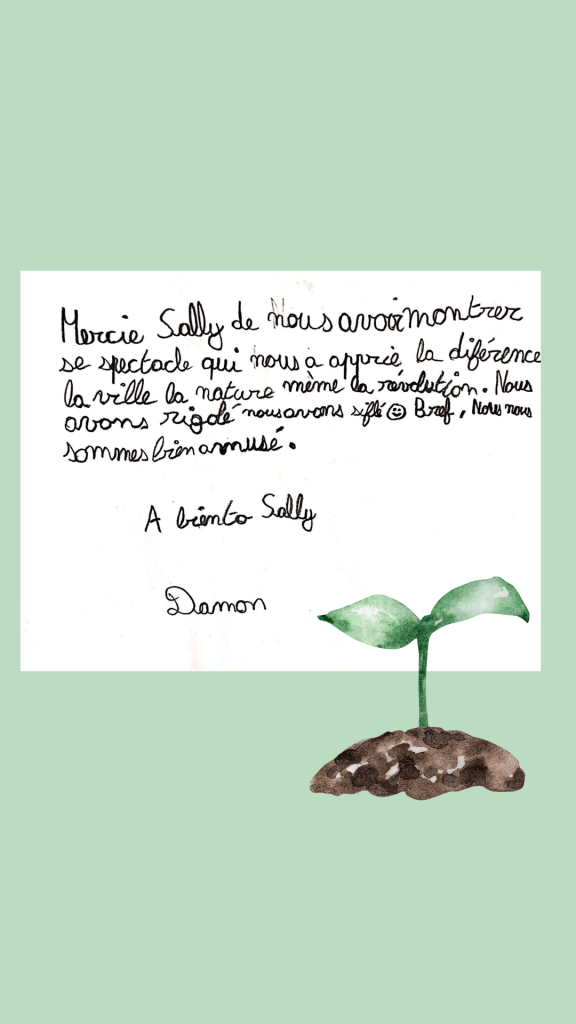 Mercie Sally de Nous avoir montrer
se spectacle qui nous à apprie la diférence
la ville la nature mème la révolution. Nous
avons rigolé nous avons siflé ☺ Bref, Nous nous
sommes bien amusé.
A biento Sally
Damon